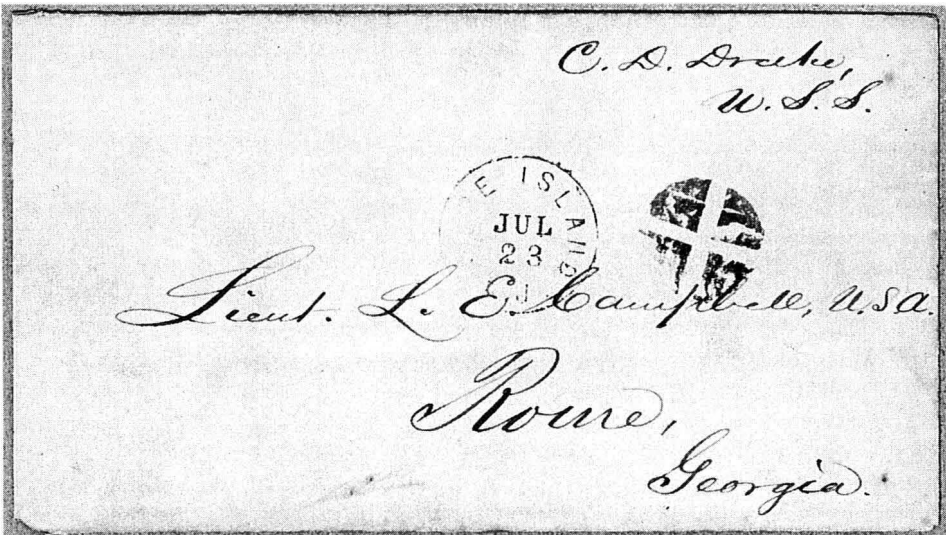 C. D. Drake,
U. S. S.
E ISLAND
JUL
23
Lieut. L. E. Campbell, U.S.A.
Rome,
Georgia.